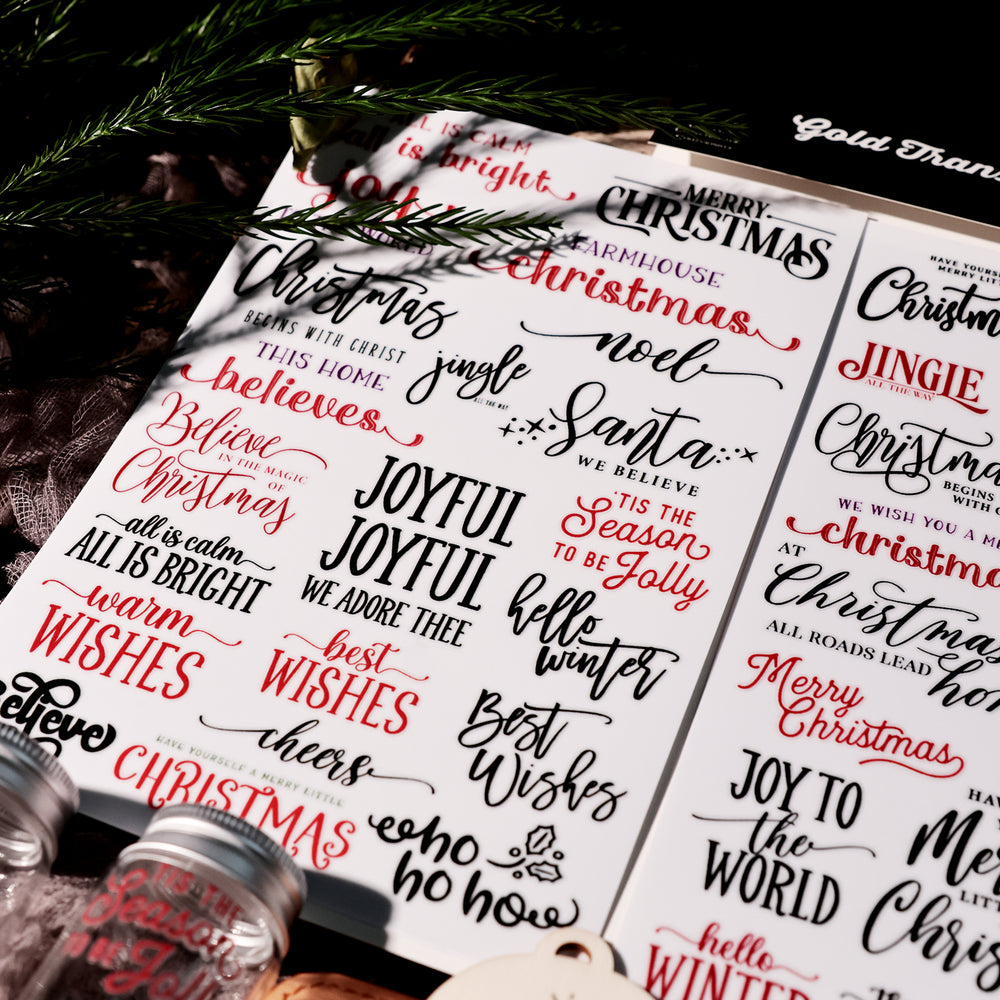 Gold Trans
ALL IS CALM
all is bright
joy
WORLD
MERRY
CHRISTMAS
FARMHOUSE
christmas
Christmas
BEGINS WITH CHRIST
noel
THIS HOME
believes
jingle
ALL THE WAY
Santa
WE BELIEVE
Believe
IN THE MAGIC
OF
Christmas
JOYFUL
JOYFUL
WE ADORE THEE
'TIS THE
Season
TO BE Jolly
all is calm
ALL IS BRIGHT
hello
winter
warm
WISHES
best
WISHES
Best
Wishes
believe
cheers
HAVE YOURSELF A MERRY LITTLE
CHRISTMAS
ho
ho ho
HAVE YOURS
MERRY LIT
Christm
JINGLE
ALL THE WAY
Christma
BEGINS
WITH C
WE WISH YOU A ME
christma
AT
Christmas
ALL ROADS LEAD
ho
Merry
Christmas
JOY TO
the
WORLD
HA
Me
LIT
Chris
hello
WINTER
'TIS THE
Season
TO BE
Jolly